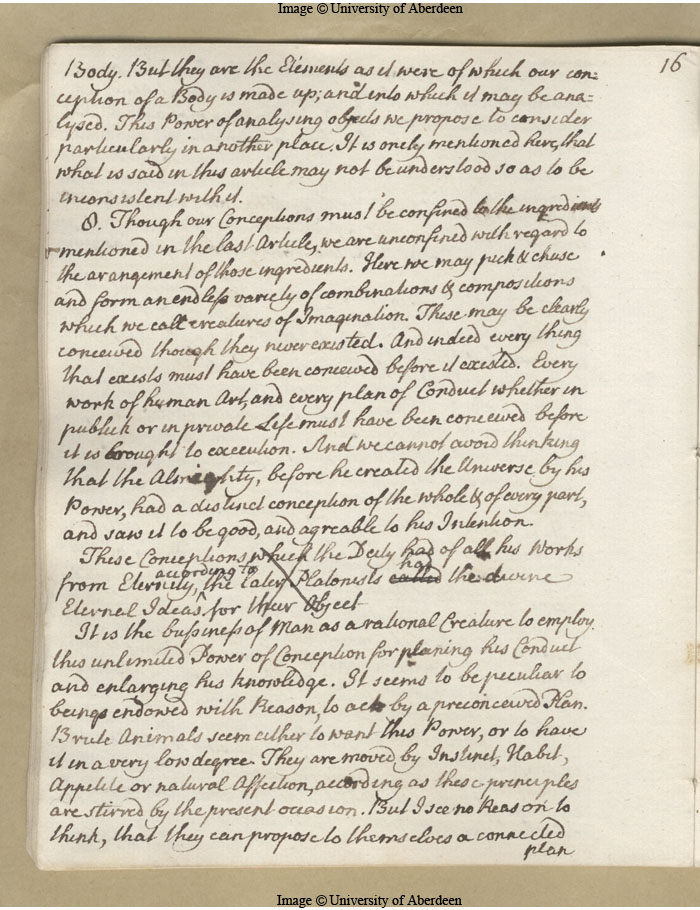 Image © University of Aberdeen
16
Body. But they are the Elements as it were of which our con=
ception of a Body is made up, and into which it may be ana=
lysed. This Power of analysing objects we propose to consider
particularly in another place. It is onely mentioned here, that
what is said in this article may not be understood so as to be
inconsistent with it.
8. Though our Conceptions must be confined to the ingredients
mentioned in the last Article, we are unconfined with regard to
the arangement of those ingredients. Here we may pick & chuse
and form an endless variety of combinations & compositions
which we call creatures of Imagination. These may be clearly
conceived though they never existed. And indeed every thing
that exists must have been conceived before it existed. Every
work of human Art, and every plan of Conduct whether in
publick or in private Life must have been conceived before
it is brought to execution. And we cannot avoid thinking
that the Almighty, before he created the Universe by his
Power, had a distinct conception of the whole & of every part,
and saw it to be good, and agreable to his Intention.
These Conceptions which the Deity had of all his Works
from Eternity, according to the later Platonists called had the divine
Eternel Ideas, for their Object
It is the bussiness of Man as a rational Creature to employ
this unlimited Power of Conception for planing his Conduct
and enlarging his knowledge. It seems to be peculiar to
beings endowed with Reason, to act by a preconceived Plan.
Brute Animals seem either to want this Power, or to have
it in a very low degree. They are moved by Instinct, Habit,
Appetite or natural Affection, according as these principles
are stirred by the present occasion. But I see no Reason to
think, that they can propose to themselves a connected
plan
Image © University of Aberdeen